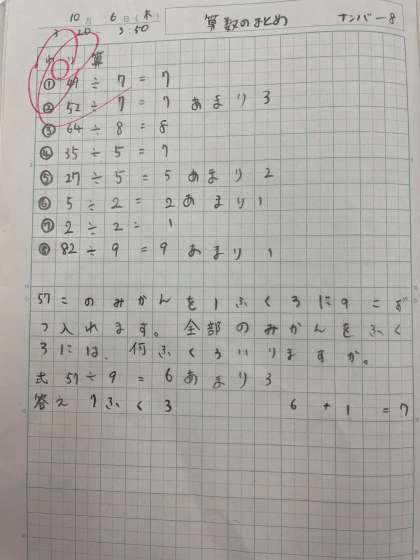 10月 6日(木) 算数のまとめ ナンバー8
3:20 3:50
わり算
① 49÷7=7
② 52÷7=7あまり3
③ 64÷8=8
④ 35÷5=7
⑤ 27÷5=5あまり2
⑥ 5÷2=2あまり1
⑦ 2÷2=1
⑧ 82÷9=9あまり1
57このみかんを1ふくろに9こず
つ入れます。全部のみかんをふく
ろには、何ふくろいりますか。
式 57÷9=6あまり3
答え 7ふくろ 6+1=7